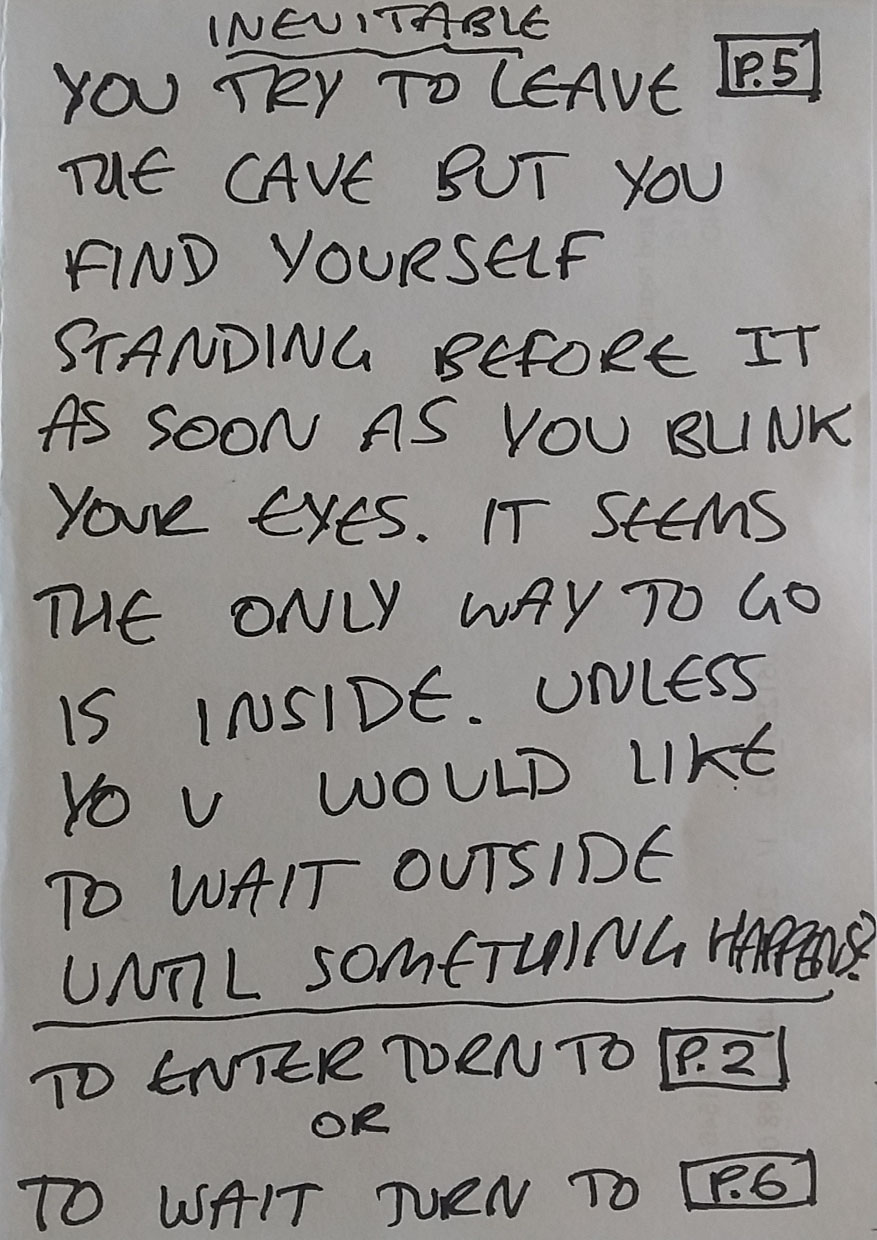 INEVITABLE
YOU TRY TO LEAVE P.5
THE CAVE BUT YOU
FIND YOURSELF
STANDING BEFORE IT
AS SOON AS YOU BLINK
YOUR EYES. IT SEEMS
THE ONLY WAY TO GO
IS INSIDE. UNLESS
YOU WOULD LIKE
TO WAIT OUTSIDE
UNTIL SOMETHING HAPPENS?
TO ENTER TURN TO P.2
OR
TO WAIT TURN TO P.6